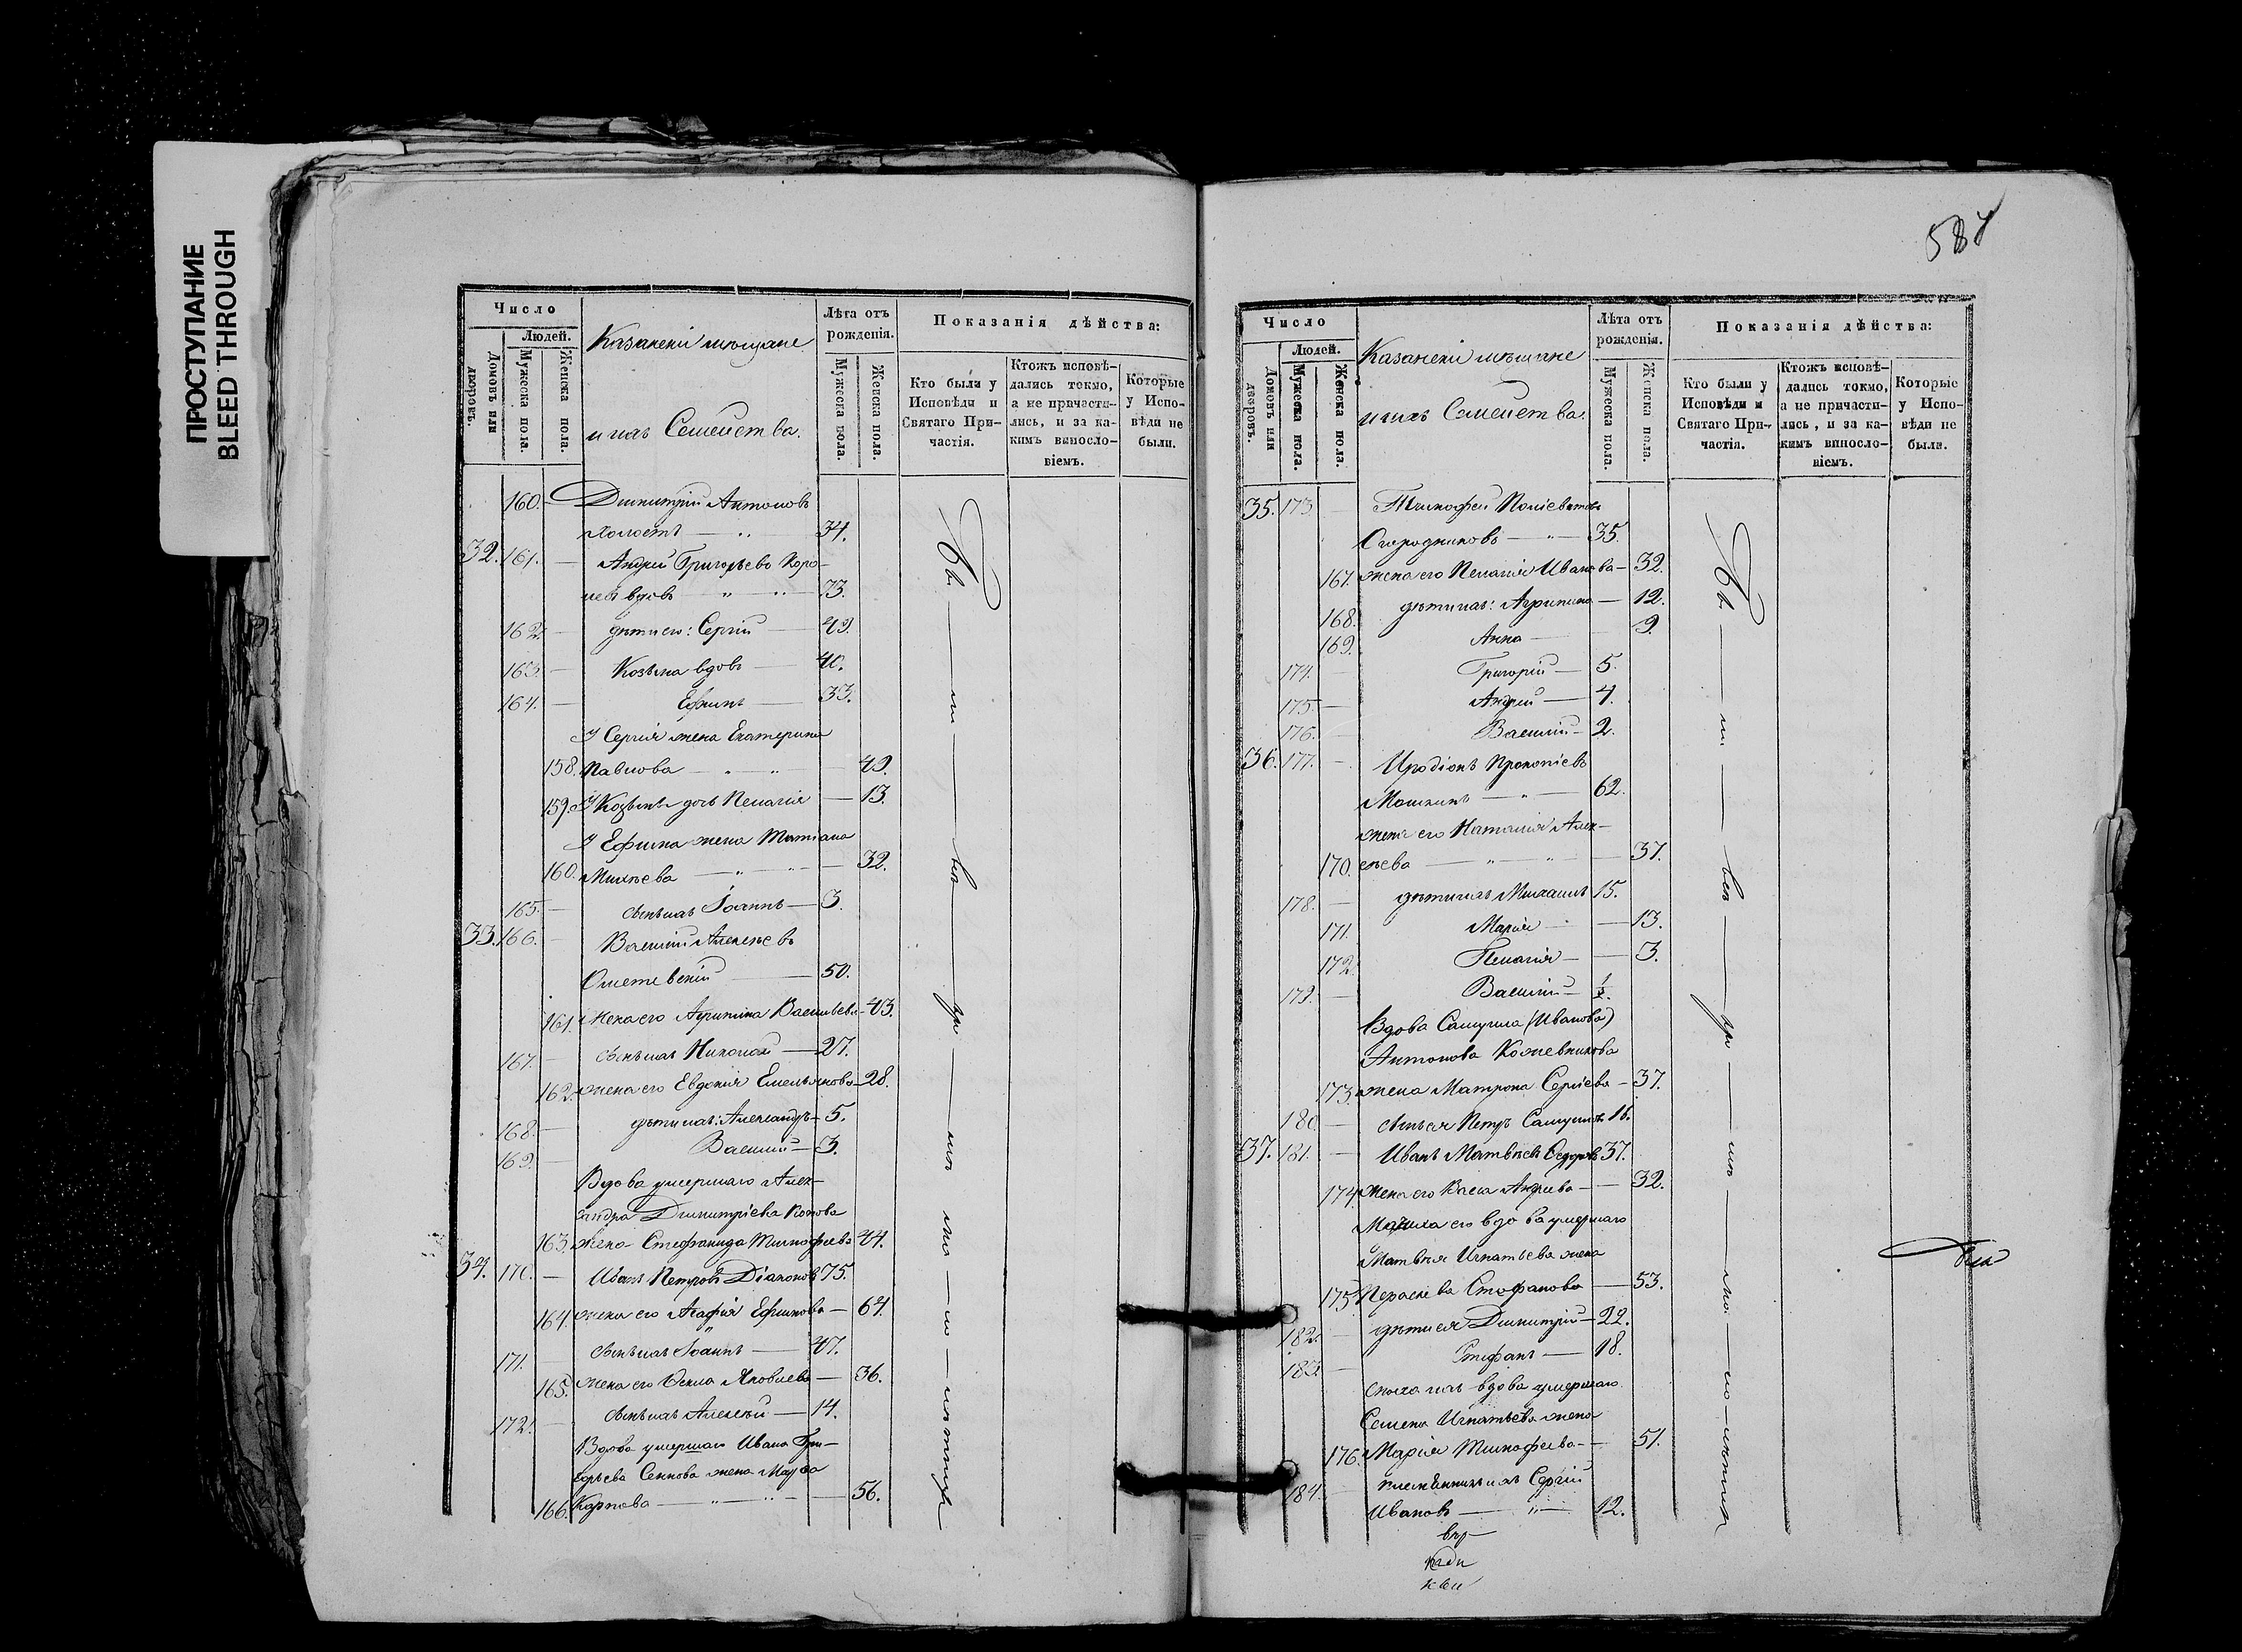 ПРОСТУПАНИЕ
BLEED THROUGH
Число
Людей.
Домовъ или дворовъ.
Мужеска пола.
Женска пола.
Казанскіи мѣщане
и ихъ Семейства.
Лѣта отъ рожденія.
Мужеска пола.
Женска пола.
Показанія дѣйства:
Кто были у Исповѣди и Святаго Причастія.
Ктожъ исповѣдались токмо, а не причастились, и за какимъ винословіемъ.
Которые у Исповѣди не были.
160. Димитрій Антоновъ
холостъ — 34.
32. 161. Андрей Григорьевъ
вдовъ — 73.
162. дѣти его: Сергій — 49.
163. Козьма вдовъ — 40.
164. Ефимъ — 33.
У Сергія жена Екатерина
158. Павлова — 49.
159. У Козьмы дочь Пелагія — 13.
У Ефима жена Татіана
160. Михѣева — 32.
165. сынъ ихъ Іоаннъ — 3.
33. 166. Василій Алексѣевъ
— 50.
161. Жена его Агрипина Васильева — 43.
167. сынъ ихъ Николай — 27.
162. жена его Евдокія Емельянова — 28.
168. дѣти ихъ: Александръ — 5.
169. Василий — 3.
Вдова умершаго Алек-
сандра Димитріева
163. жена Стефанида Тимофеева 44.
34. 170. Иванъ Петровъ Діаконовъ 75.
164. жена его Агафія Ефимова — 64.
171. сынъ ихъ Іоаннъ — 47.
165. жена его Ѳекла Яковлева — 36.
172. сынъ ихъ Алексѣй — 14.
Вдова умершаго Ивана Гри-
горьева Сеннова жена Марѳа
166. Карпова — 56.
Число
Людей.
Домовъ или дворовъ.
Мужеска пола.
Женска пола.
Казанскіи мѣщане
и ихъ Семейства.
Лѣта отъ рожденія.
Мужеска пола.
Женска пола.
Показанія дѣйства:
Кто были у Исповѣди и Святаго Причастія.
Ктожъ исповѣдались токмо, а не причастились, и за какимъ винословіемъ.
Которые у Исповѣди не были.
35. 173. Тимофей
Смородниковъ — 35.
167. жена его Пелагія Иванова — 32.
168. дѣти ихъ: Агрипина — 12.
169. Анна — 9.
174. Григорій — 5.
175. Андрей — 4.
176. Василій — 2.
36. 177. Иродіонъ Прокопіевъ
Мошкинъ — 62.
жена его Наталія Алек-
170. сѣева — 37.
178. дѣти ихъ Михаилъ 15.
171. Марія — 13.
172. Пелагія — 3.
179. Василій —
Вдова Самуила (Иванова)
Антонова Кожевникова
173. жена Матрона Сергіева — 37.
180. сынъ ея Петръ Самуиловъ 16.
37. 181. Иванъ Матвѣевъ Ѳедоровъ 37.
174. жена его Васса Андреева — 32.
Мачиха его вдова умершаго
Матвѣя Игнатьева жена
175. Параскева Стефанова — 53.
182. дѣти ея Димитрій — 22.
183. Стефанъ — 18.
сноха ихъ вдова умершаго
Семена Игнатьева жена
176. Марія Тимофеева — 51.
184. племянникъ ихъ Сергій
Ивановъ — 12.